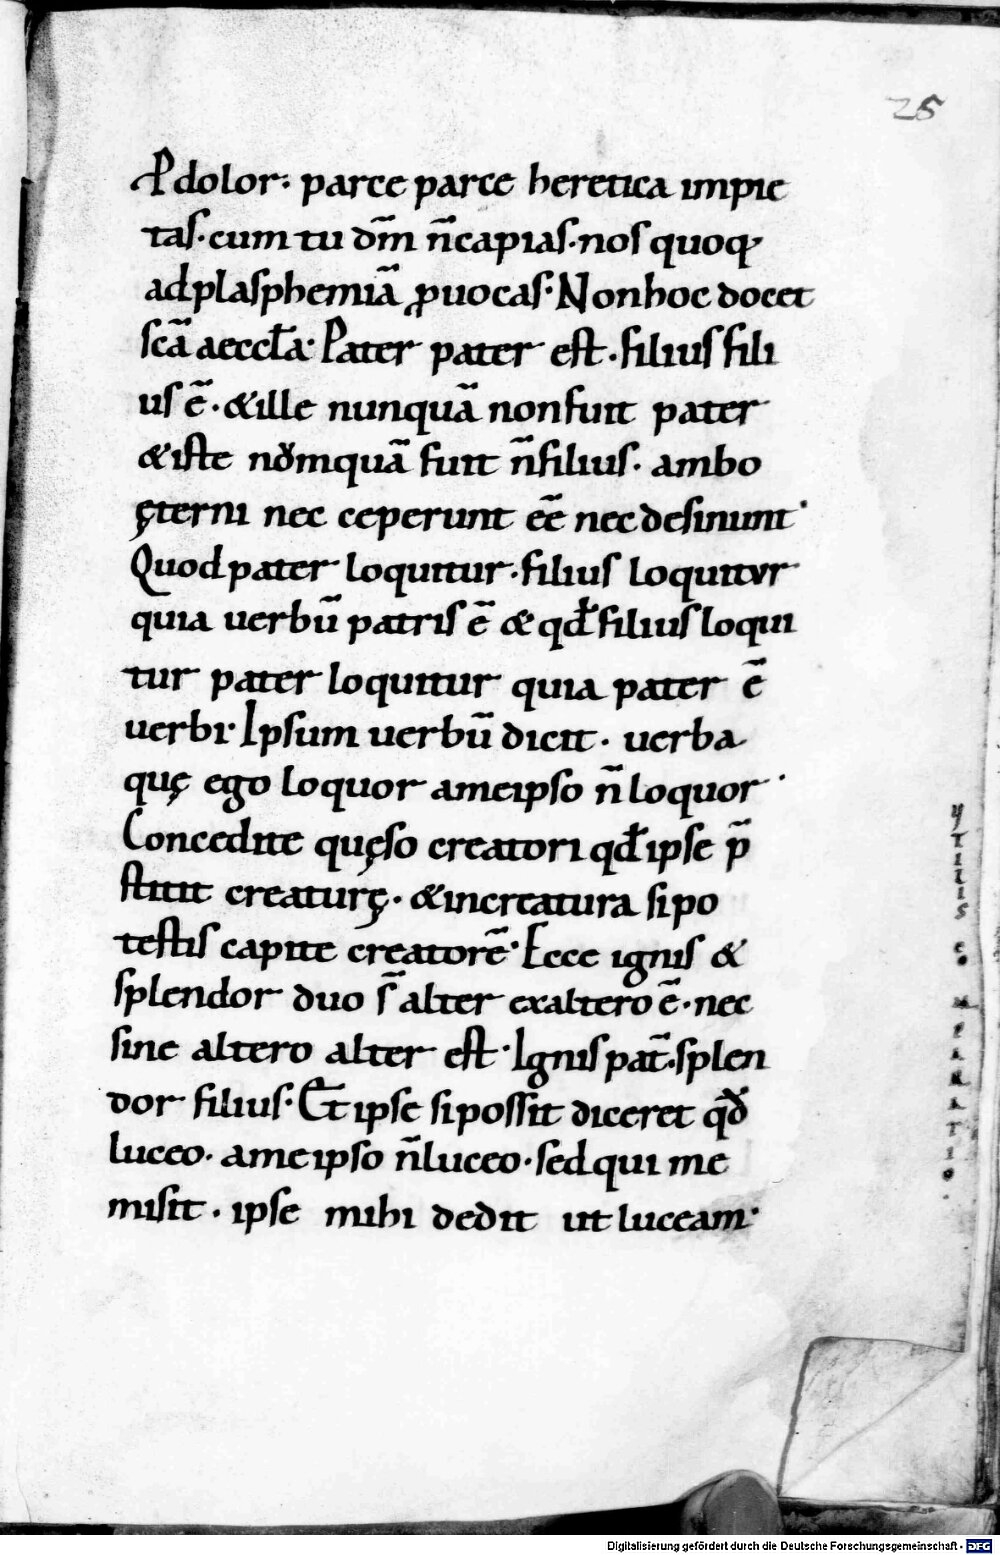 25
Pdolor: parce parce heretica impie
tas· cum tu dm̄ n̄ capias· nos quoq;
ad plasphemiā ꝓuocas· Non hoc docet
sc̄a aeccƚa· Pater pater est· filius fili
us ē· & ille nunquā non fuit pater
& iste nūmquā fuit n̄ filius· ambo
ęterni nec ceperunt eē nec desinunt·
Quod pater loquitur· filius loquitvr
quia uerbū patris ē & qđ filius loqui
tur pater loquitur quia pater ē
uerbi· Ipsum uerbū dicit· uerba
quę ego loquor ameipso n̄ loquor·
Concedite quęso creatori qđ ipse p̄
stitit creaturę· & increatura si po
testis capite creatorē· Ecce ignis &
splendor duo s̄ alter exaltero ē· nec
sine altero alter est· Ignis pat̄· splen
dor filius· Et ipse si possit diceret qđ
luceo· ameipso n̄ luceo· sed qui me
misit· ipse mihi dedit ut luceam·
YTILIS COMPARATIO·
Digitalisierung gefördert durch die Deutsche Forschungsgemeinschaft - DFG